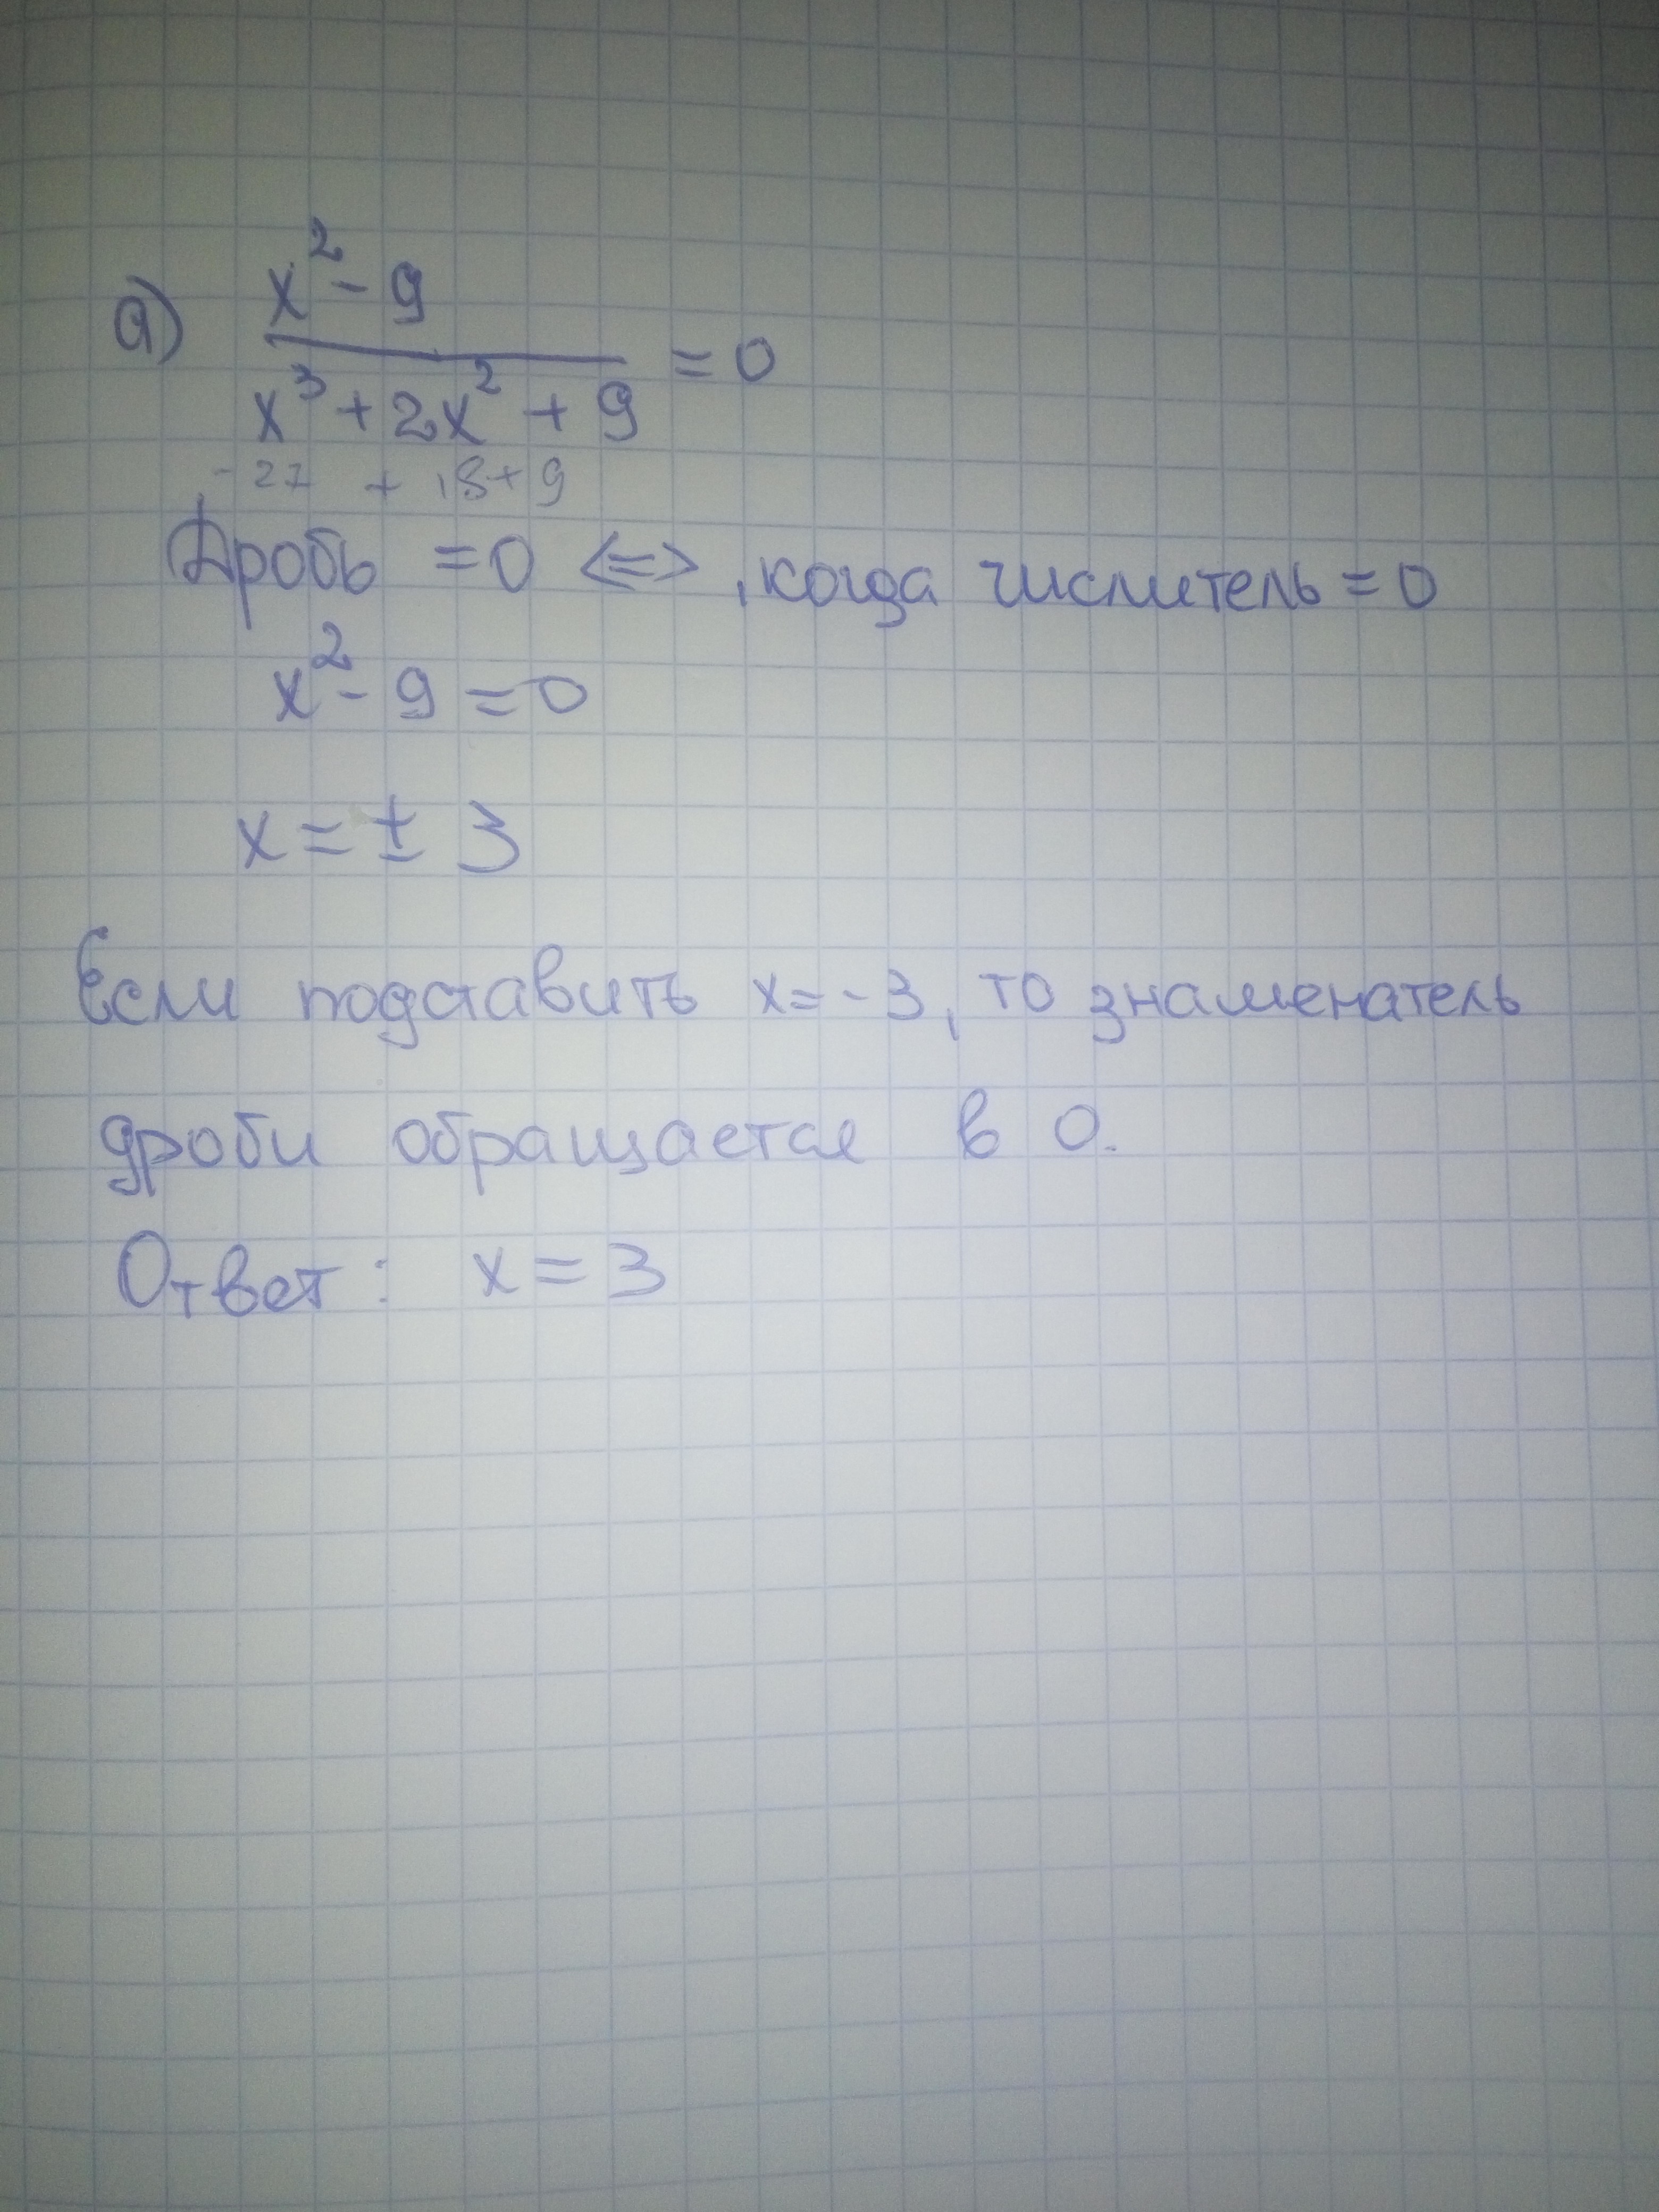 а) x² - 9
x³ + 2x² + 9 = 0
- 27 + 18 + 9
Дробь = 0 <=> , когда числитель = 0
x² - 9 = 0
x = ± 3
Если подставить x = - 3, то знаменатель
дроби обращается в 0.
Ответ: x = 3